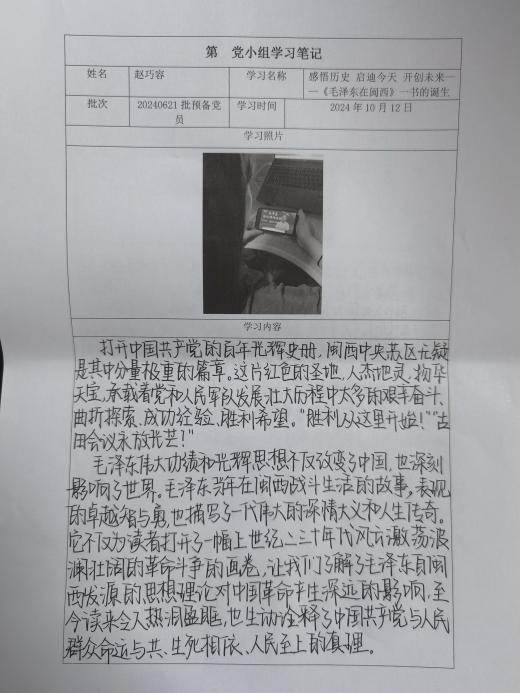 第 党小组学习笔记
姓名 赵巧容 学习名称 感悟历史 启迪今天 开创未来—
—《毛泽东在闽西》一书的诞生
批次 20240621批预备党
员 学习时间 2024年10月12日
学习照片
学习内容
打开中国共产党的百年光辉史册，闽西中央苏区无疑
是其中分量极重的篇章。这片红色的圣地，人杰地灵、物华
天宝，承载着党和人民军队发展壮大历程中太多的艰辛奋斗、
曲折探索、成功经验、胜利希望。“胜利从这里开始！”“古
田会议永放光芒！”
毛泽东伟大功绩和光辉思想不仅改变了中国，也深刻
影响了世界。毛泽东当年在闽西战斗生活的故事，表现
的卓越智与勇，也描写了一代伟人的深情大义和人生传奇。
它不仅为读者打开了一幅上世纪二三十年代风云激荡波
澜壮阔的革命斗争的画卷，让我们了解了毛泽东自闽
西发源的思想理论对中国革命产生深远的影响，至
今读来令人热泪盈眶，也生动诠释了中国共产党与人民
群众命运与共、生死相依、人民至上的真理。